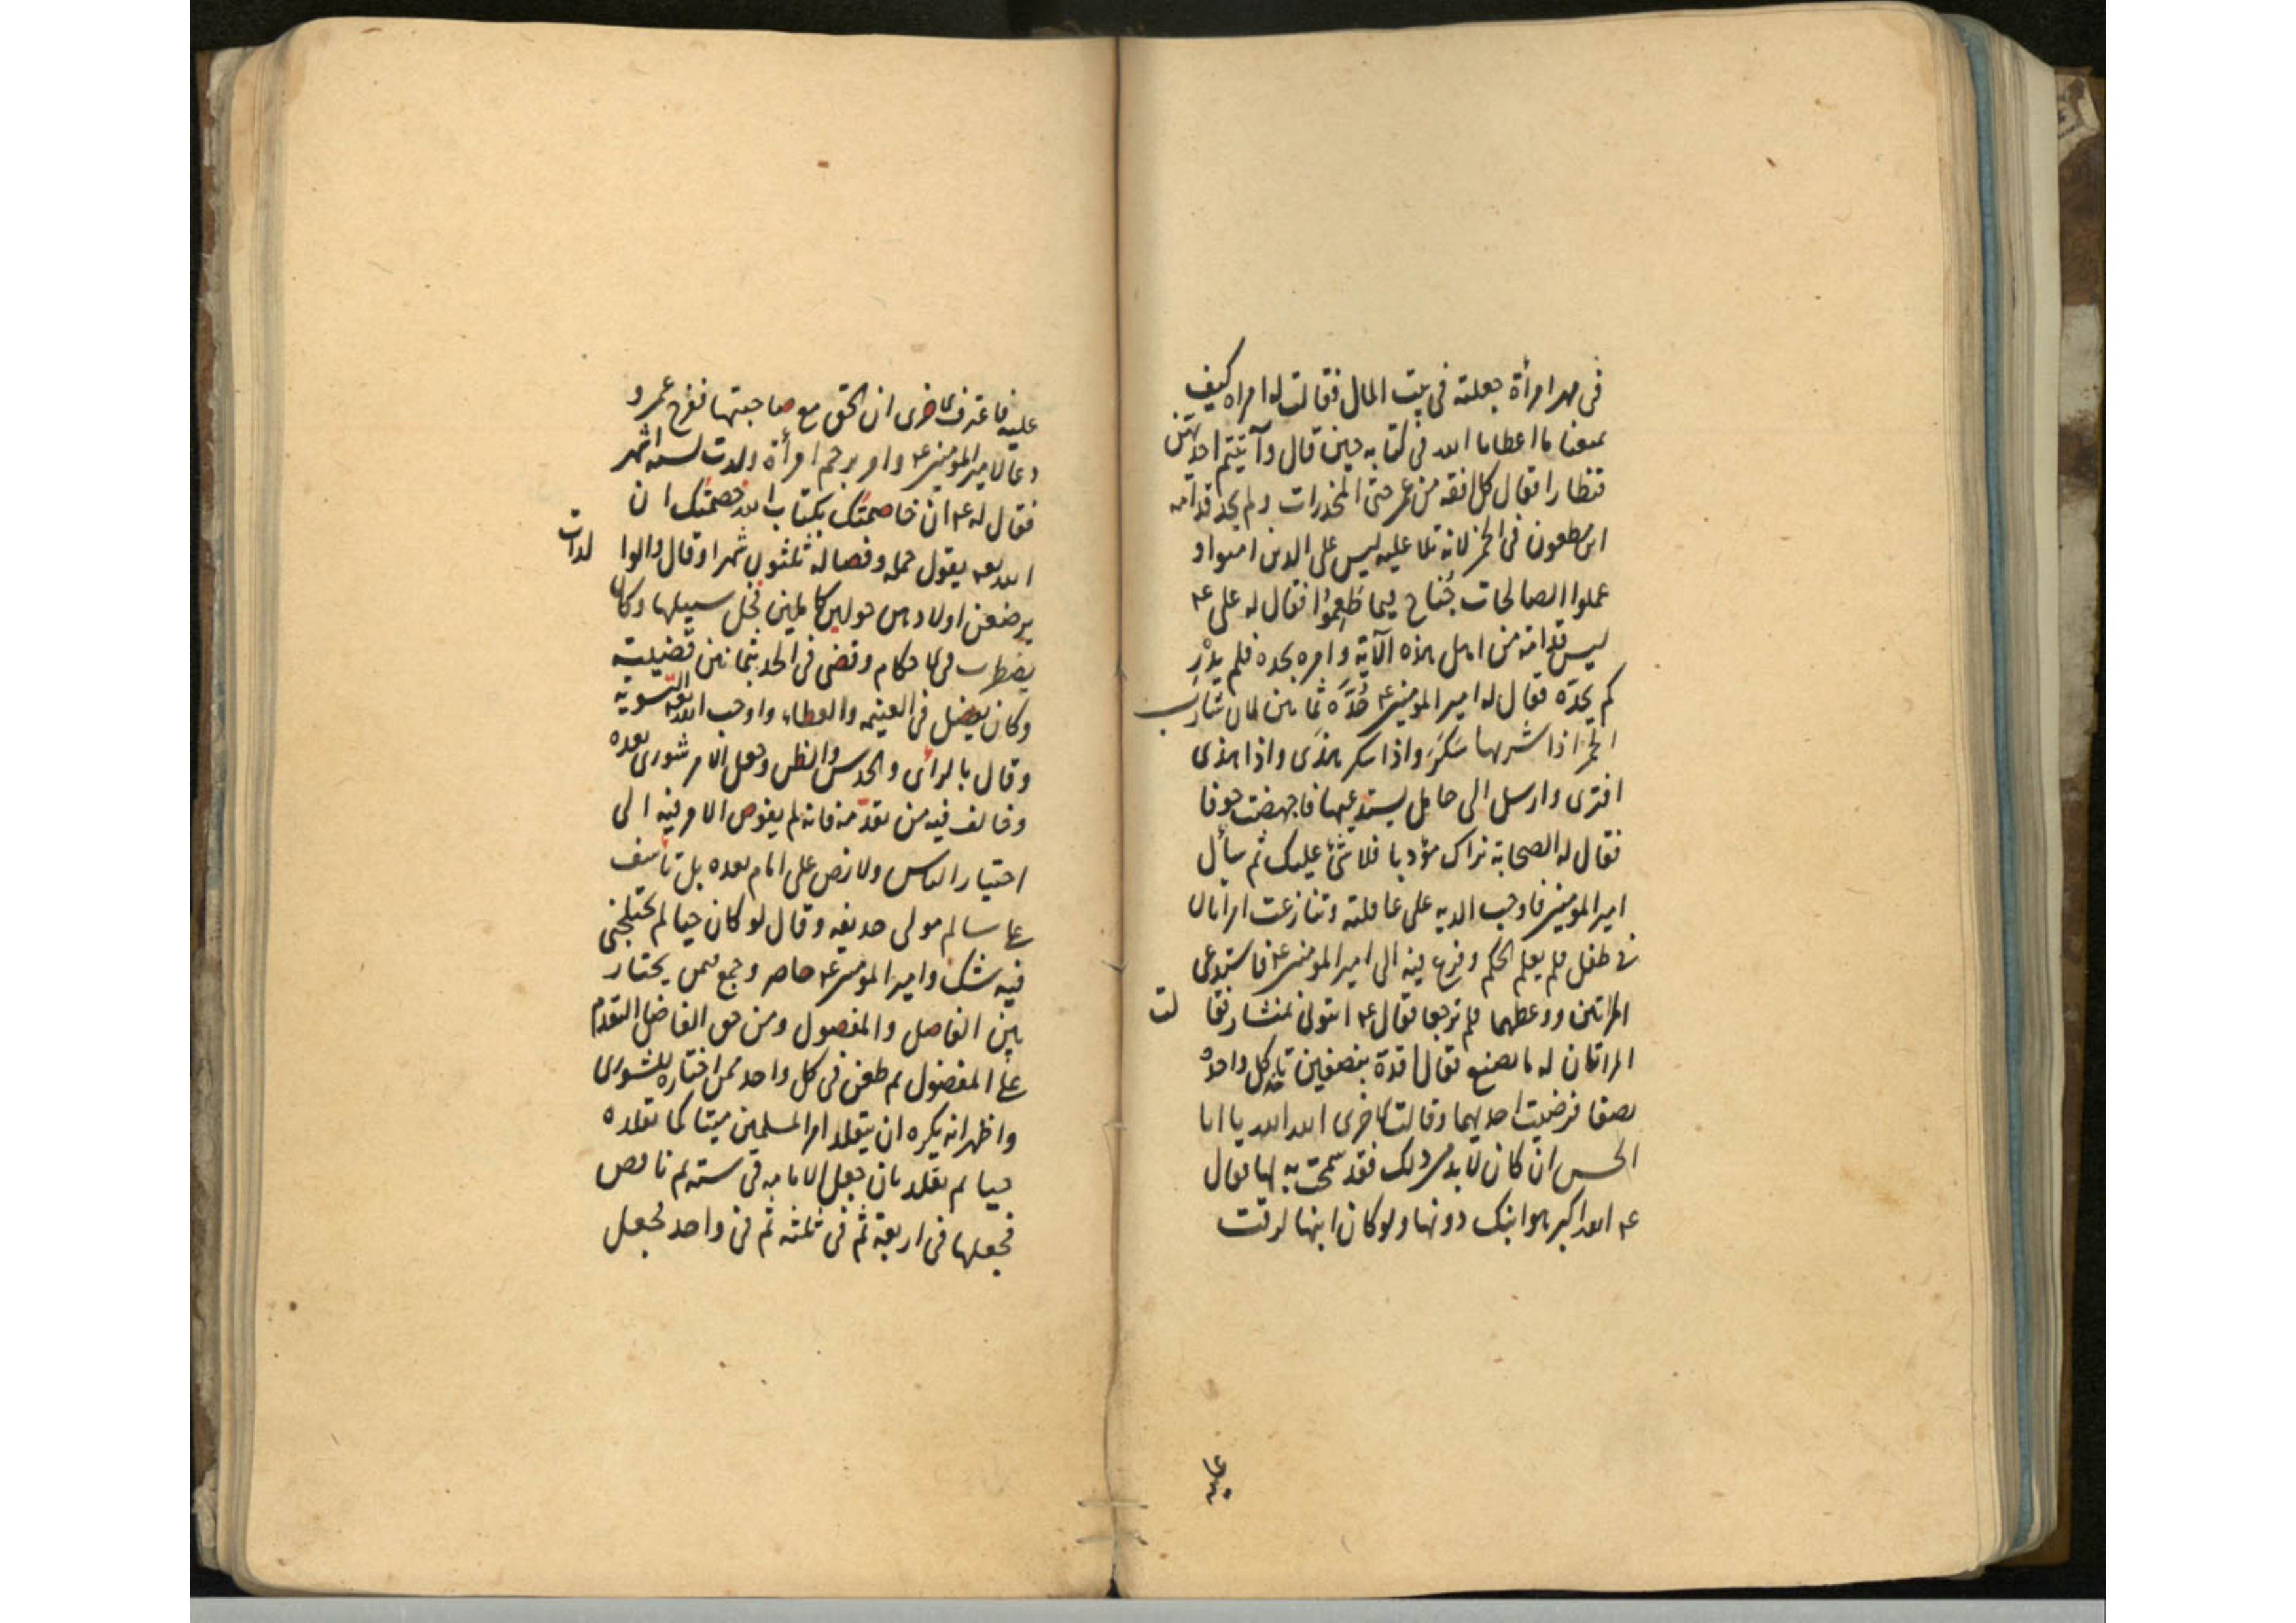 في مهر امرأة جعلته في بيت المال فقالت له امراه كيف
تمنعنا ما اعطانا الله في كتابه حين قال وآتيتم احديهن
قنطارا فقال كل افقه من عمر حتى المخدرات ولم يحد قدامه
ابن مظعون في الخمر لانه تلا عليه ليس على الذين امنوا و
عملوا الصالحات جُناح فيما طَعِمُوا فقال له على ع
ليس قدامة من اهل هذه الآية وامره بحده فلم يدْرِ
كم يحدّه فقال له امير المؤمنين ع حُدَّه ثمانين لان شارب
الخمر اذا شربها سَكَرَ واذا سكر هذَى واذا هذى
افترى وارسل الى حامل يستدعيها فاجهضت خوفا
فقال له الصحابة نراك مؤدبا فلا شئ عليك ثم سأل
امير المؤمنين فاوجب الديه على عاقلته وتنازعت امراتان
في طفل فلم يعلم الحكم وفزع فيه الى امير المؤمنين ع فاستدعى
المراتين ووعظهما فلم ترجعا فقال ع ائتونى بمنشار فقا لت
المراتان له ما تصنع فقال اقدة بنصفين تاخذ كل واحدة
نصفا فرضيت احديهما وقالت الاخرى الله الله يا ابا
الحسن ان كان لا بد من ذلك فقد سمحت به لها فقال
ع الله اكبر هو ابنك دونها ولو كان ابنها لرقت
عليه
عليه فاعترفت الاخرى ان الحق مع صاحبتها ففرح عمر و
دعا لامير المؤمنين ع وامر برجم امرأة ولدت لسته اشهر
فقال له ع ان خاصمتك بكتاب الله خصمتك ان
الله يقول حمله وفصاله ثلثون شهرا وقال والوا لدات
يرضعن اولادهن حولين كاملين فخل سبيلها وكان
يضطرب في الاحكام وقضى في الحد بثمانين قضيّة
وكان يفضل في الغنيمه والعطاء واوجب الله تعالى التسوية
وقال بالرأى والحدس والظن وجعل الامر شورى بعده
وخالف فيه من تقدّمه فانه لم يفوض الامر فيه الى
اختيار الناس ولا نص على امام بعده بل تأسف
على سالم مولى حذيفه وقال لو كان حيا لم يختلجنى
فيه شك وامير المؤمنين ع حاضر وجمع فيمن يختار
بين الفاضل والمفضول ومن حق الفاضل التقدم
على المفضول ثم طعن في كل واحد ممن اختاره للشورى
واظهر انه يكره ان يتقلد امر المسلمين ميتا كما تقلده
حيا ثم تقلد بان جعل الامامه في سته ثم ناقض
فجعلها في اربعة ثم في ثلثه ثم في واحد فجعل